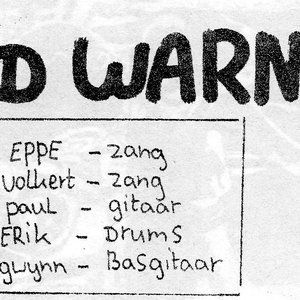 D WARN
EPPE - zang
volkert - zang
paul - gitaar
ERik - DRumS
gwynn - BaSgitaar